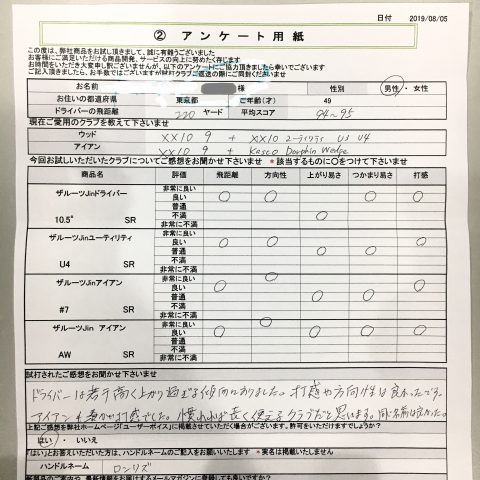 日付 2019/08/05
② アンケート用紙
この度は、弊社商品をお試し頂きまして、誠に有難うございました
お客様にご満足いただける商品開発、サービスの向上に努めたく存じます
お時間をいただき大変申し訳ございませんが、以下のアンケートにご協力頂きたく幸いでございます
ご記入頂きましたら、お手数ではございますが試打クラブご返送の際にご同封くださいませ
お名前 様 性別 男性・女性
お住いの都道府県 東京都 ご年齢(才) 49
ドライバーの飛距離 220 ヤード 平均スコア 94~95
現在ご愛用のクラブを教えて下さいませ
ウッド XX10 9 + XX10 ユーティリティ U3 U4
アイアン XX10 9 + Kasco Dolphin Wedge
今回お試しいただいたクラブについてご感想をお聞かせ下さいませ *該当するものに○をつけて下さいませ
商品名 評価 飛距離 方向性 上がり易さ つかまり易さ 打感
ザルーツJinドライバー
10.5° SR
非常に良い
良い
普通
不満
非常に不満
ザルーツJinユーティリティ
U4 SR
非常に良い
良い
普通
不満
非常に不満
ザルーツJinアイアン
#7 SR
非常に良い
良い
普通
不満
非常に不満
ザルーツJin アイアン
AW SR
非常に良い
良い
普通
不満
非常に不満
試打されたご感想をお聞かせ下さいませ
ドライバーは若干高く上がり過ぎる傾向にありました。打感や方向性は良かったです。
アイアンも 打感でした。慣れれば長く使えるクラブだと思います。
上記ご感想を弊社ホームページ「ユーザーボイス」に掲載させていただく場合がございます。許可をいただけますでしょうか?
はい / いいえ
「はい」とお答えいただいた方は、ハンドルネームのご記入をお願いいたします *実名は掲載いたしません
ハンドルネーム ロンリズ